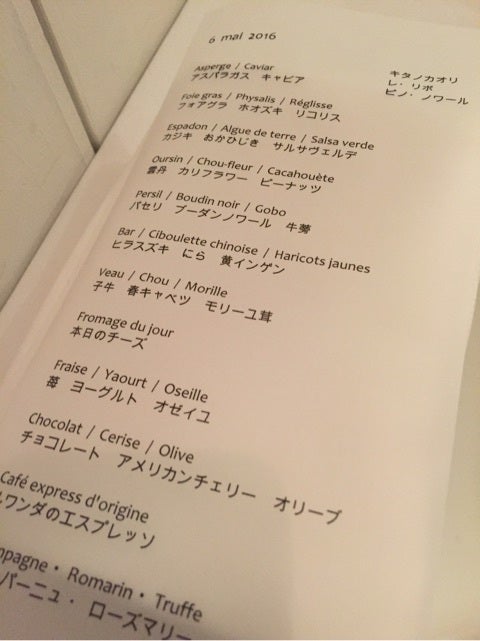 6 mai 2016
Asperge / Caviar
アスパラガス キャビア
Foie gras / Physalis / Réglisse
フォアグラ ホオズキ リコリス
Espadon / Algue de terre / Salsa verde
カジキ おかひじき サルサヴェルデ
Oursin / Chou-fleur / Cacahouète
雲丹 カリフラワー ピーナッツ
Persil / Boudin noir / Gobo
パセリ ブーダンノワール 牛蒡
Bar / Ciboulette chinoise / Haricots jaunes
ヒラスズキ にら 黄インゲン
Veau / Chou / Morille
子牛 春キャベツ モリーユ茸
Fromage du jour
本日のチーズ
Fraise / Yaourt / Oseille
苺 ヨーグルト オゼイユ
Chocolat / Cerise / Olive
チョコレート アメリカンチェリー オリーブ
Café express d'origine
ルワンダのエスプレッソ
mpagne・ Romarin・ Truffe
パーニュ・ ローズマリー
キタノカオリ
レ・リボ
ピノ・ノワール